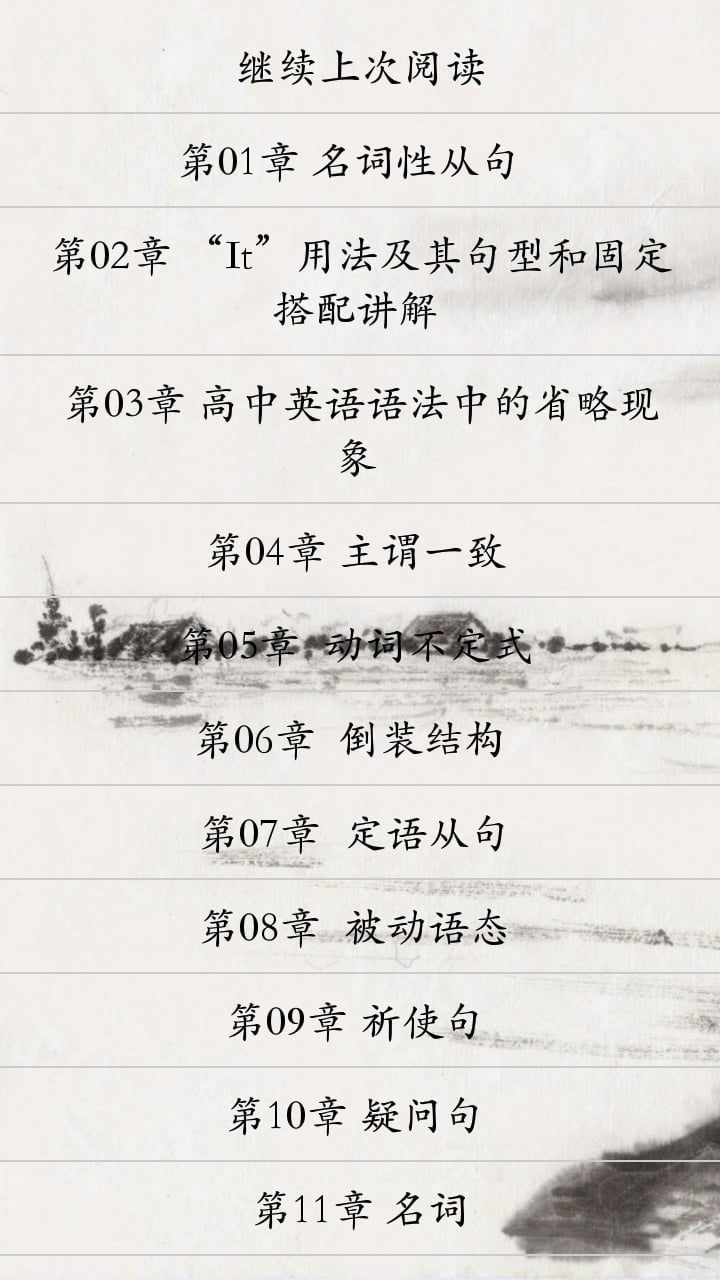 继续上次阅读
第01章 名词性从句
第02章 “It”用法及其句型和固定
搭配讲解
第03章 高中英语语法中的省略现
象
第04章 主谓一致
第05章 动词不定式
第06章 倒装结构
第07章 定语从句
第08章 被动语态
第09章 祈使句
第10章 疑问句
第11章 名词